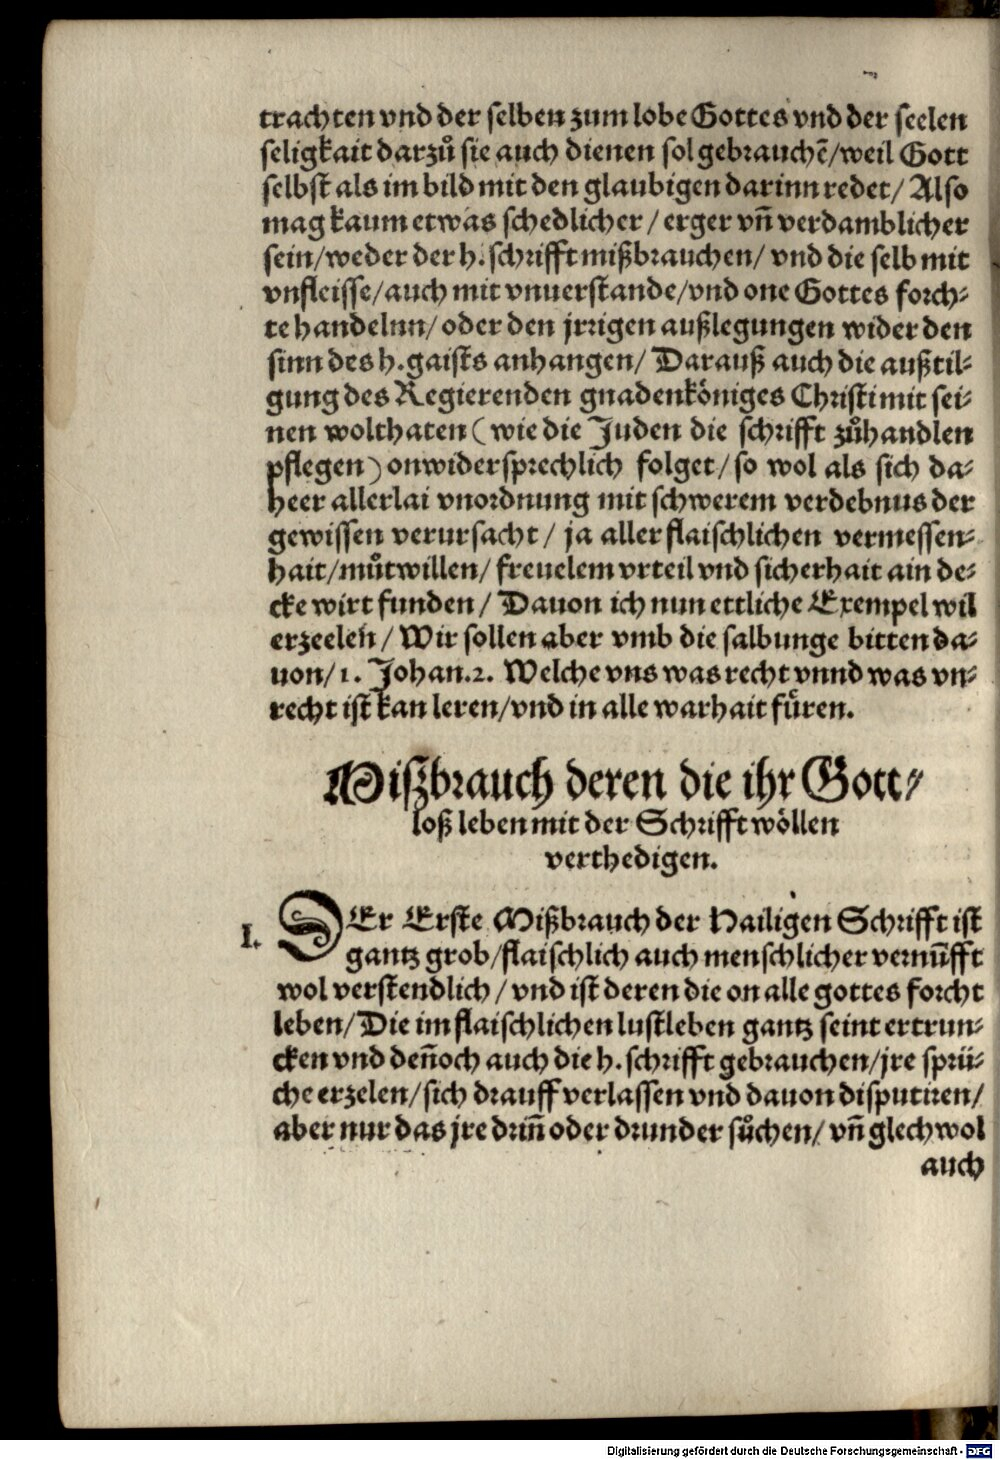 trachten vnd der selben zum lobe Gottes vnd der seelen
seligkait darzuͦ sie auch dienen sol gebrauchē/weil Gott
selbst als im bild mit den glaubigen darinn redet/ Also
mag kaum etwas schedlicher / erger vn̄ verdamblicher
sein/weder der h. schrifft mißbrauchen/ vnd die selb mit
vnfleisse/auch mit vnuerstande/vnd one Gottes forch-
te handelnn/ oder den jrrigen außlegungen wider den
sinn des h. gaists anhangen/ Darauß auch die außtil-
gung des Regierenden gnadenköniges Christi mit sei-
nen wolthaten ( wie die Juden die schrifft zuͦhandlen
pflegen ) onwidersprechlich folget/ so wol als sich da-
heer allerlai vnordnung mit schwerem verdebnus der
gewissen verursacht / ja aller flaischlichen vermessen-
hait/muͦtwillen/ freuelem vrteil vnd sicherhait ain de-
cke wirt funden / Dauon ich nun ettliche Exempel wil
erzeelen / Wir sollen aber vmb die salbunge bitten da-
uon/ 1. Johan. 2. Welche vns was recht vnnd was vn-
recht ist kan leren/vnd in alle warhait füren.
Miszbrauch deren die ihr Gott-
loß leben mit der Schrifft wöllen
verthedigen.
I. DEr Erste Mißbrauch der Hailigen Schrifft ist
gantz grob/flaischlich auch menschlicher vernūfft
wol verstendlich / vnd ist deren die on alle gottes forcht
leben/ Die im flaischlichen lustleben gantz seint ertrun-
cken vnd den̄och auch die h. schrifft gebrauchen/jre sprü-
che erzelen/ sich drauff verlassen vnd dauon disputiren/
aber nur das jre drin̄ oder drunder suͦchen/ vn̄ glech wol
auch
Digitalisierung gefördert durch die Deutsche Forschungsgemeinschaft - DFG